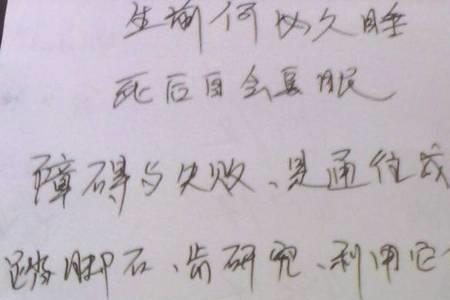 生前何必久睡
死后自会長眠
障碍与失败、是通往成
踏脚石、肯研究、利用它